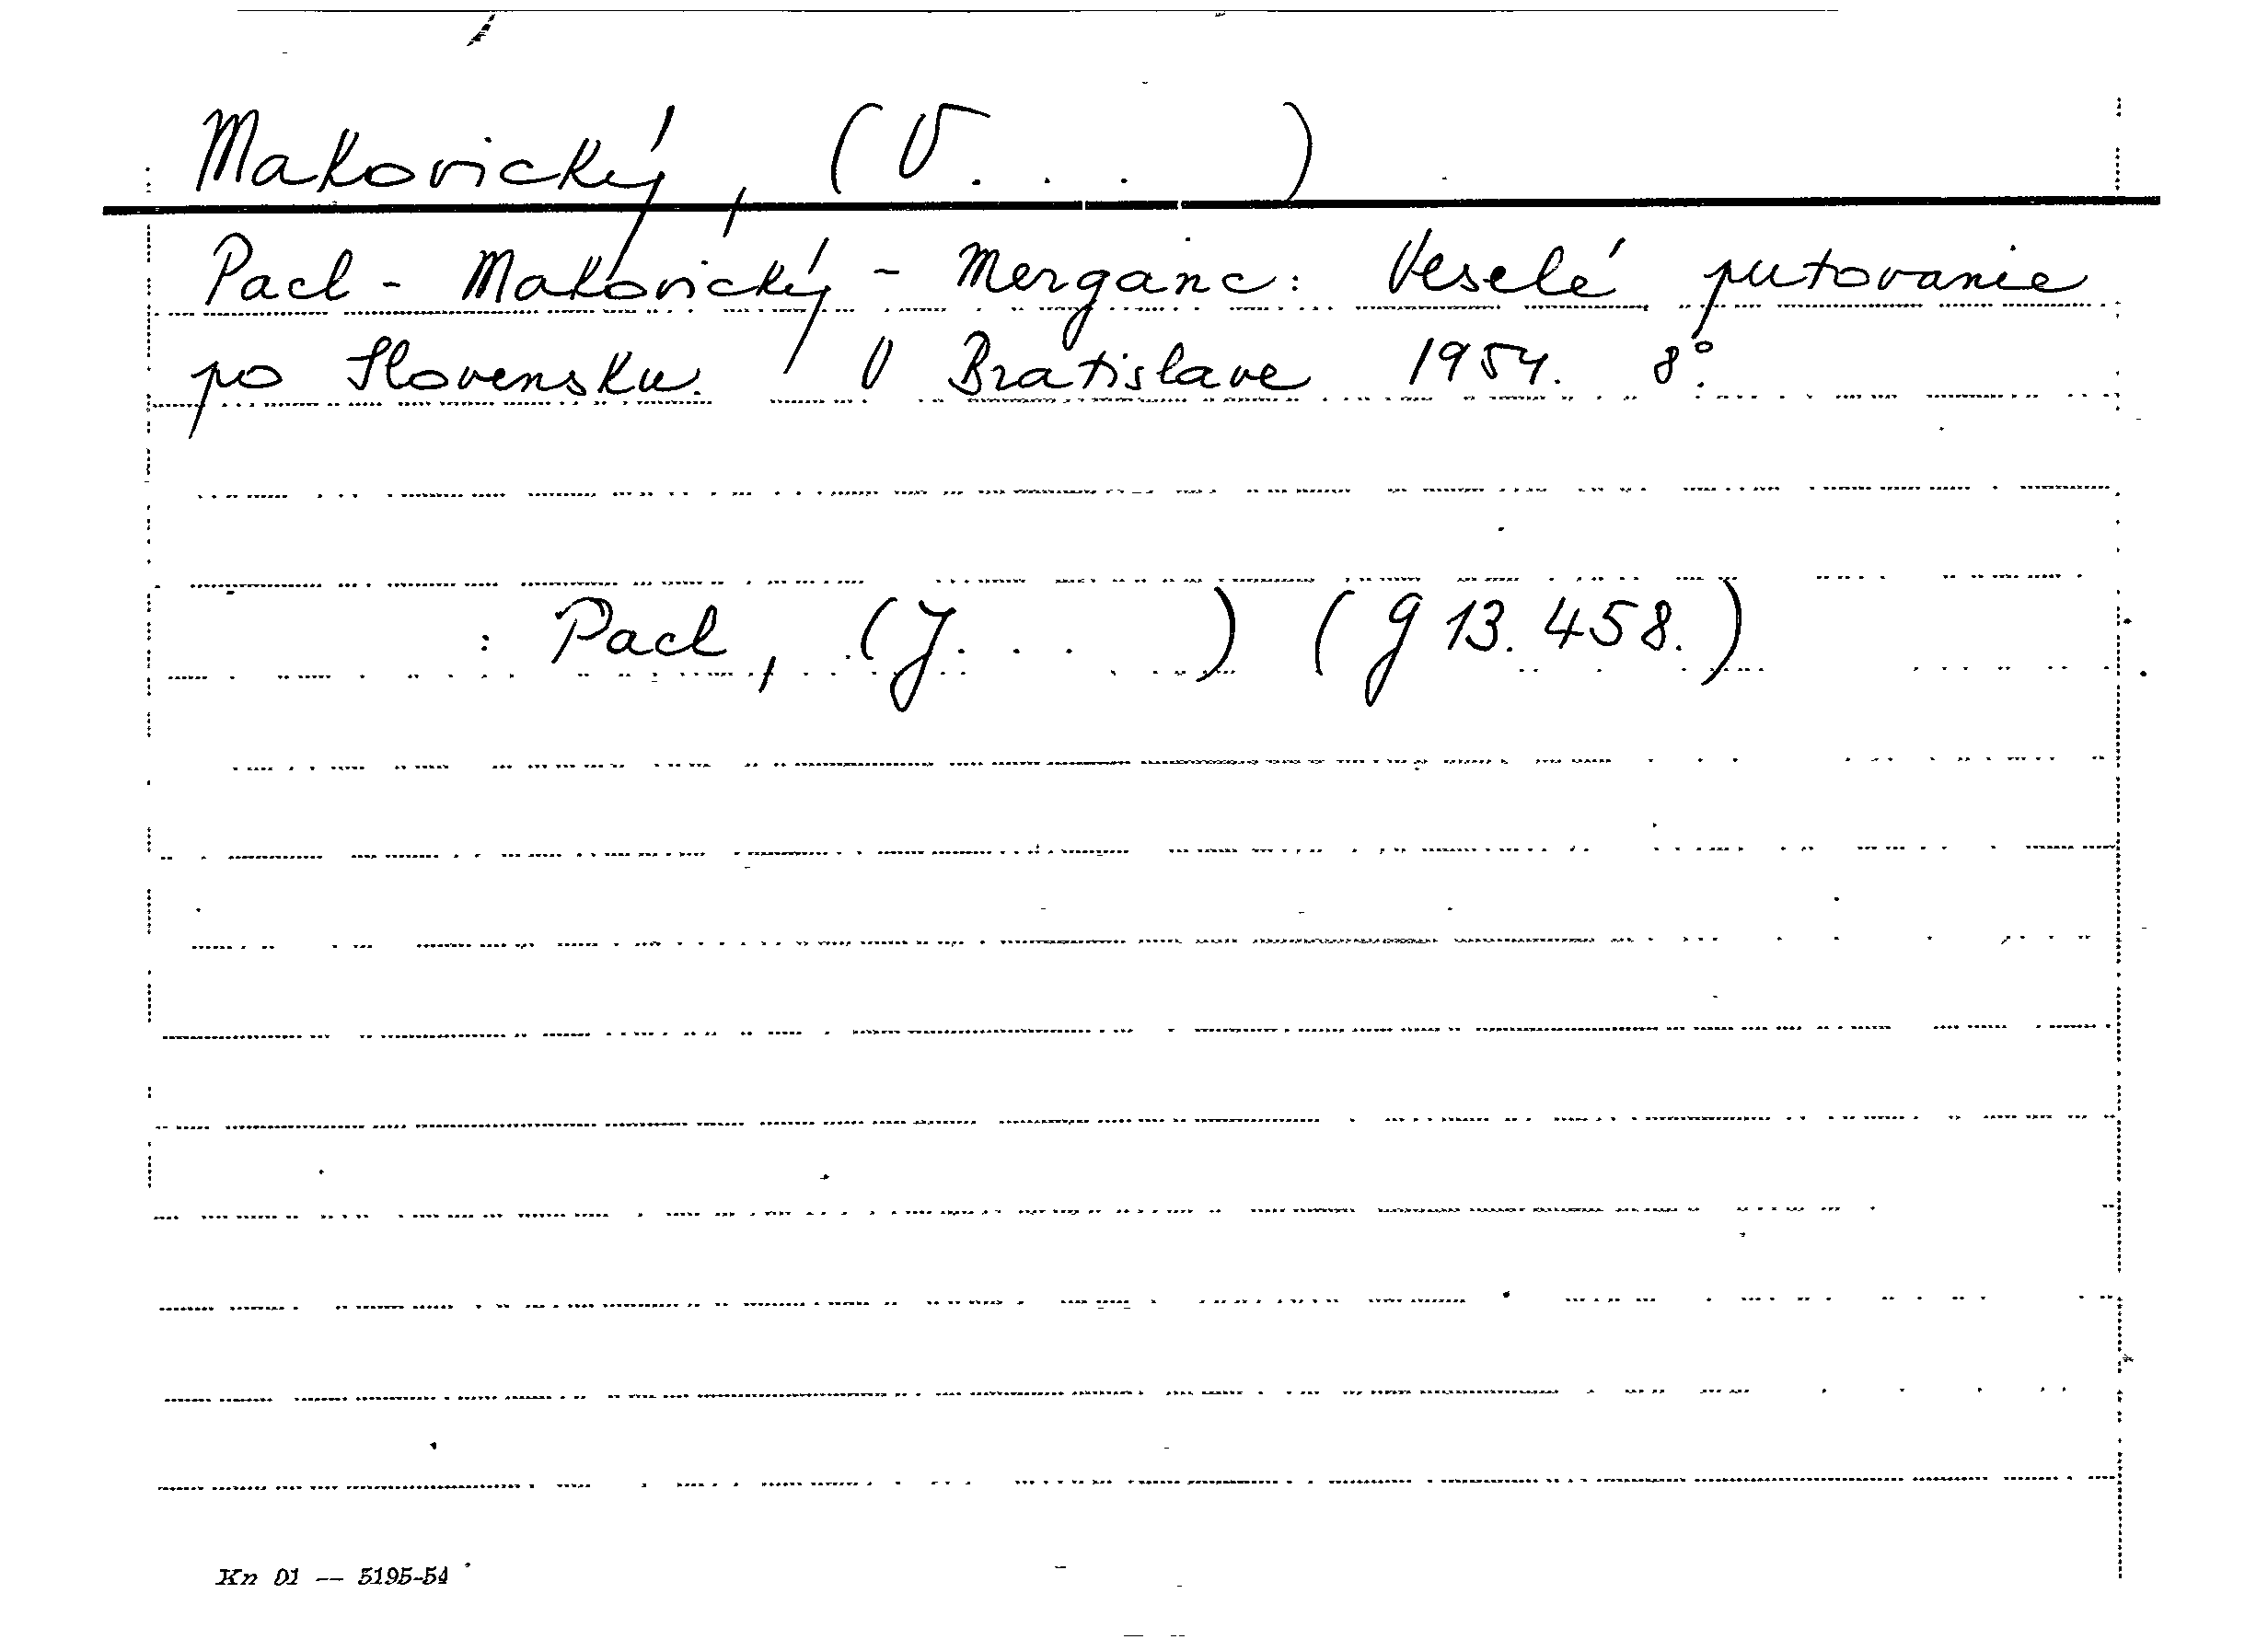 Makovický, (V. . . )
Pacl - Makovický - Merganc: Veselé putovanie
po Slovensku. V Bratislave 1954. 8°.
: Pacl, (J. . . ) (g 13.458.)
Kn 01 — 5195-54